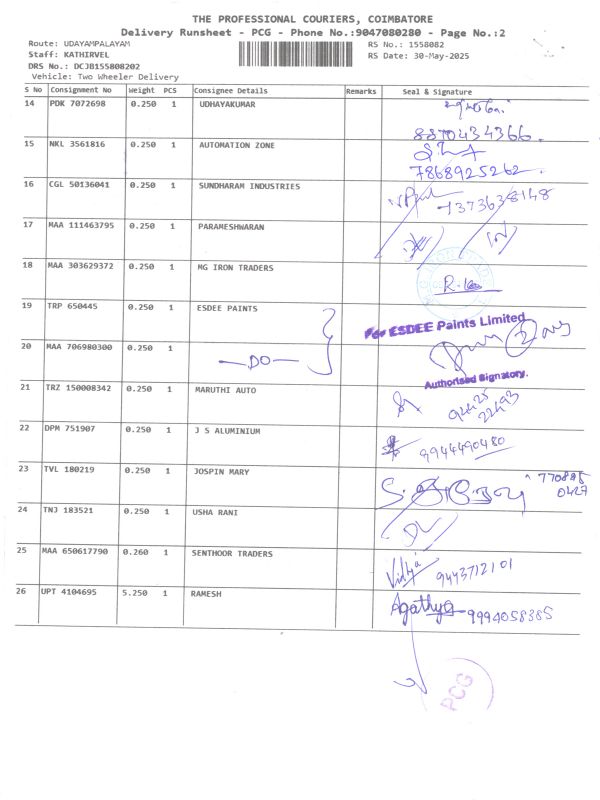 THE PROFESSIONAL COURIERS, COIMBATORE
Delivery Runsheet - PCG - Phone No.:9047080280 - Page No.:2
Route: UDAYAMPALAYAM RS No.: 1558082
Staff: KATHIRVEL RS Date: 30-May-2025
DRS No.: DCJB155808202
Vehicle: Two Wheeler Delivery
S No Consignment No Weight PCS Consignee Details Remarks Seal & Signature
14 PDK 7072698 0.250 1 UDHAYAKUMAR
8870434366.
15 NKL 3561816 0.250 1 AUTOMATION ZONE
7868925262.
16 CGL 50136041 0.250 1 SUNDHARAM INDUSTRIES
7373638148
17 MAA 111463795 0.250 1 PARAMESHWARAN
18 MAA 303629372 0.250 1 MG IRON TRADERS
19 TRP 650445 0.250 1 ESDEE PAINTS
For ESDEE Paints Limited
20 MAA 706980300 0.250 1 —DO—
Authorised Signatory.
21 TRZ 150008342 0.250 1 MARUTHI AUTO
94425
22493
22 DPM 751907 0.250 1 J S ALUMINIUM
9944490480
23 TVL 180219 0.250 1 JOSPIN MARY
770885
0427
24 TNJ 183521 0.250 1 USHA RANI
25 MAA 650617790 0.260 1 SENTHOOR TRADERS
Vidya 9443712101
26 UPT 4104695 5.250 1 RAMESH
Agathya 9994058385
PCG